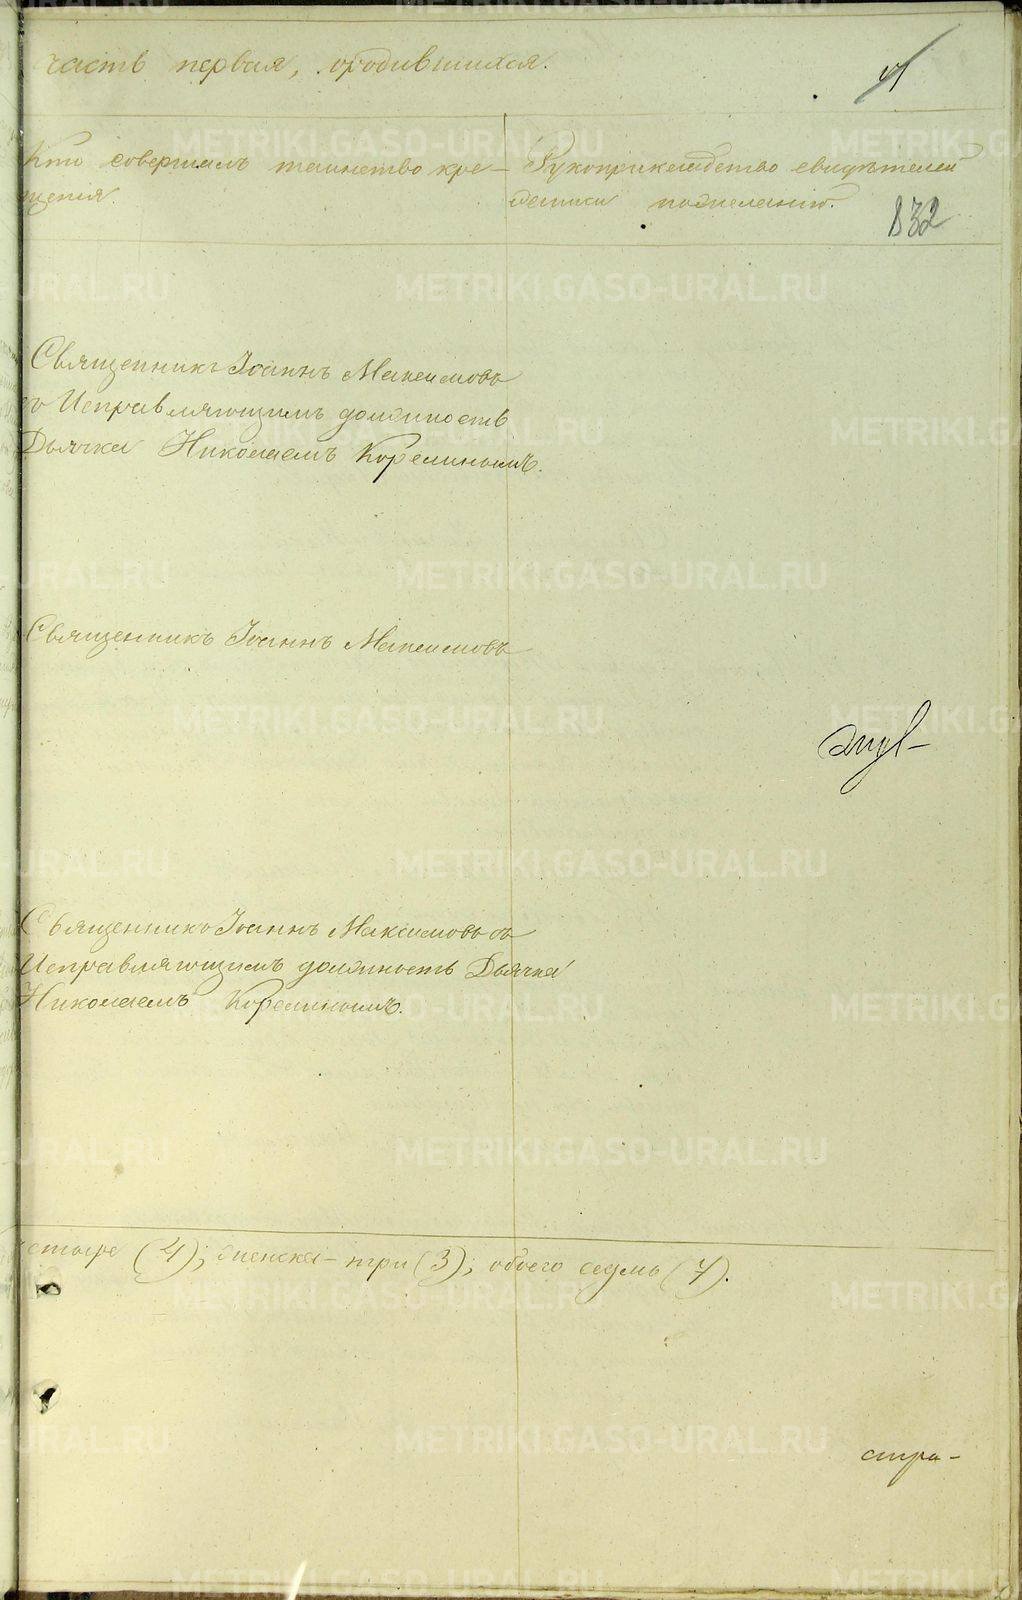 часть первая, о родившихся.
41
Кто совершалъ таинство кре-
щенія.
Рукоприкладство свидѣтелей
записи по желанію.
832
Священникъ Іоаннъ Максимовъ
съ Исправляющимъ должность
Дьячка Николаемъ Корелинымъ.
Священникъ Іоаннъ Максимовъ
Священникъ Іоаннъ Максимовъ съ
Исправляющимъ должность Дьячка
Николаемъ Корелинымъ.
четыре (4); женска – три (3); обоего седмь (7).
стра-
METRIKI.GASO-URAL.RU